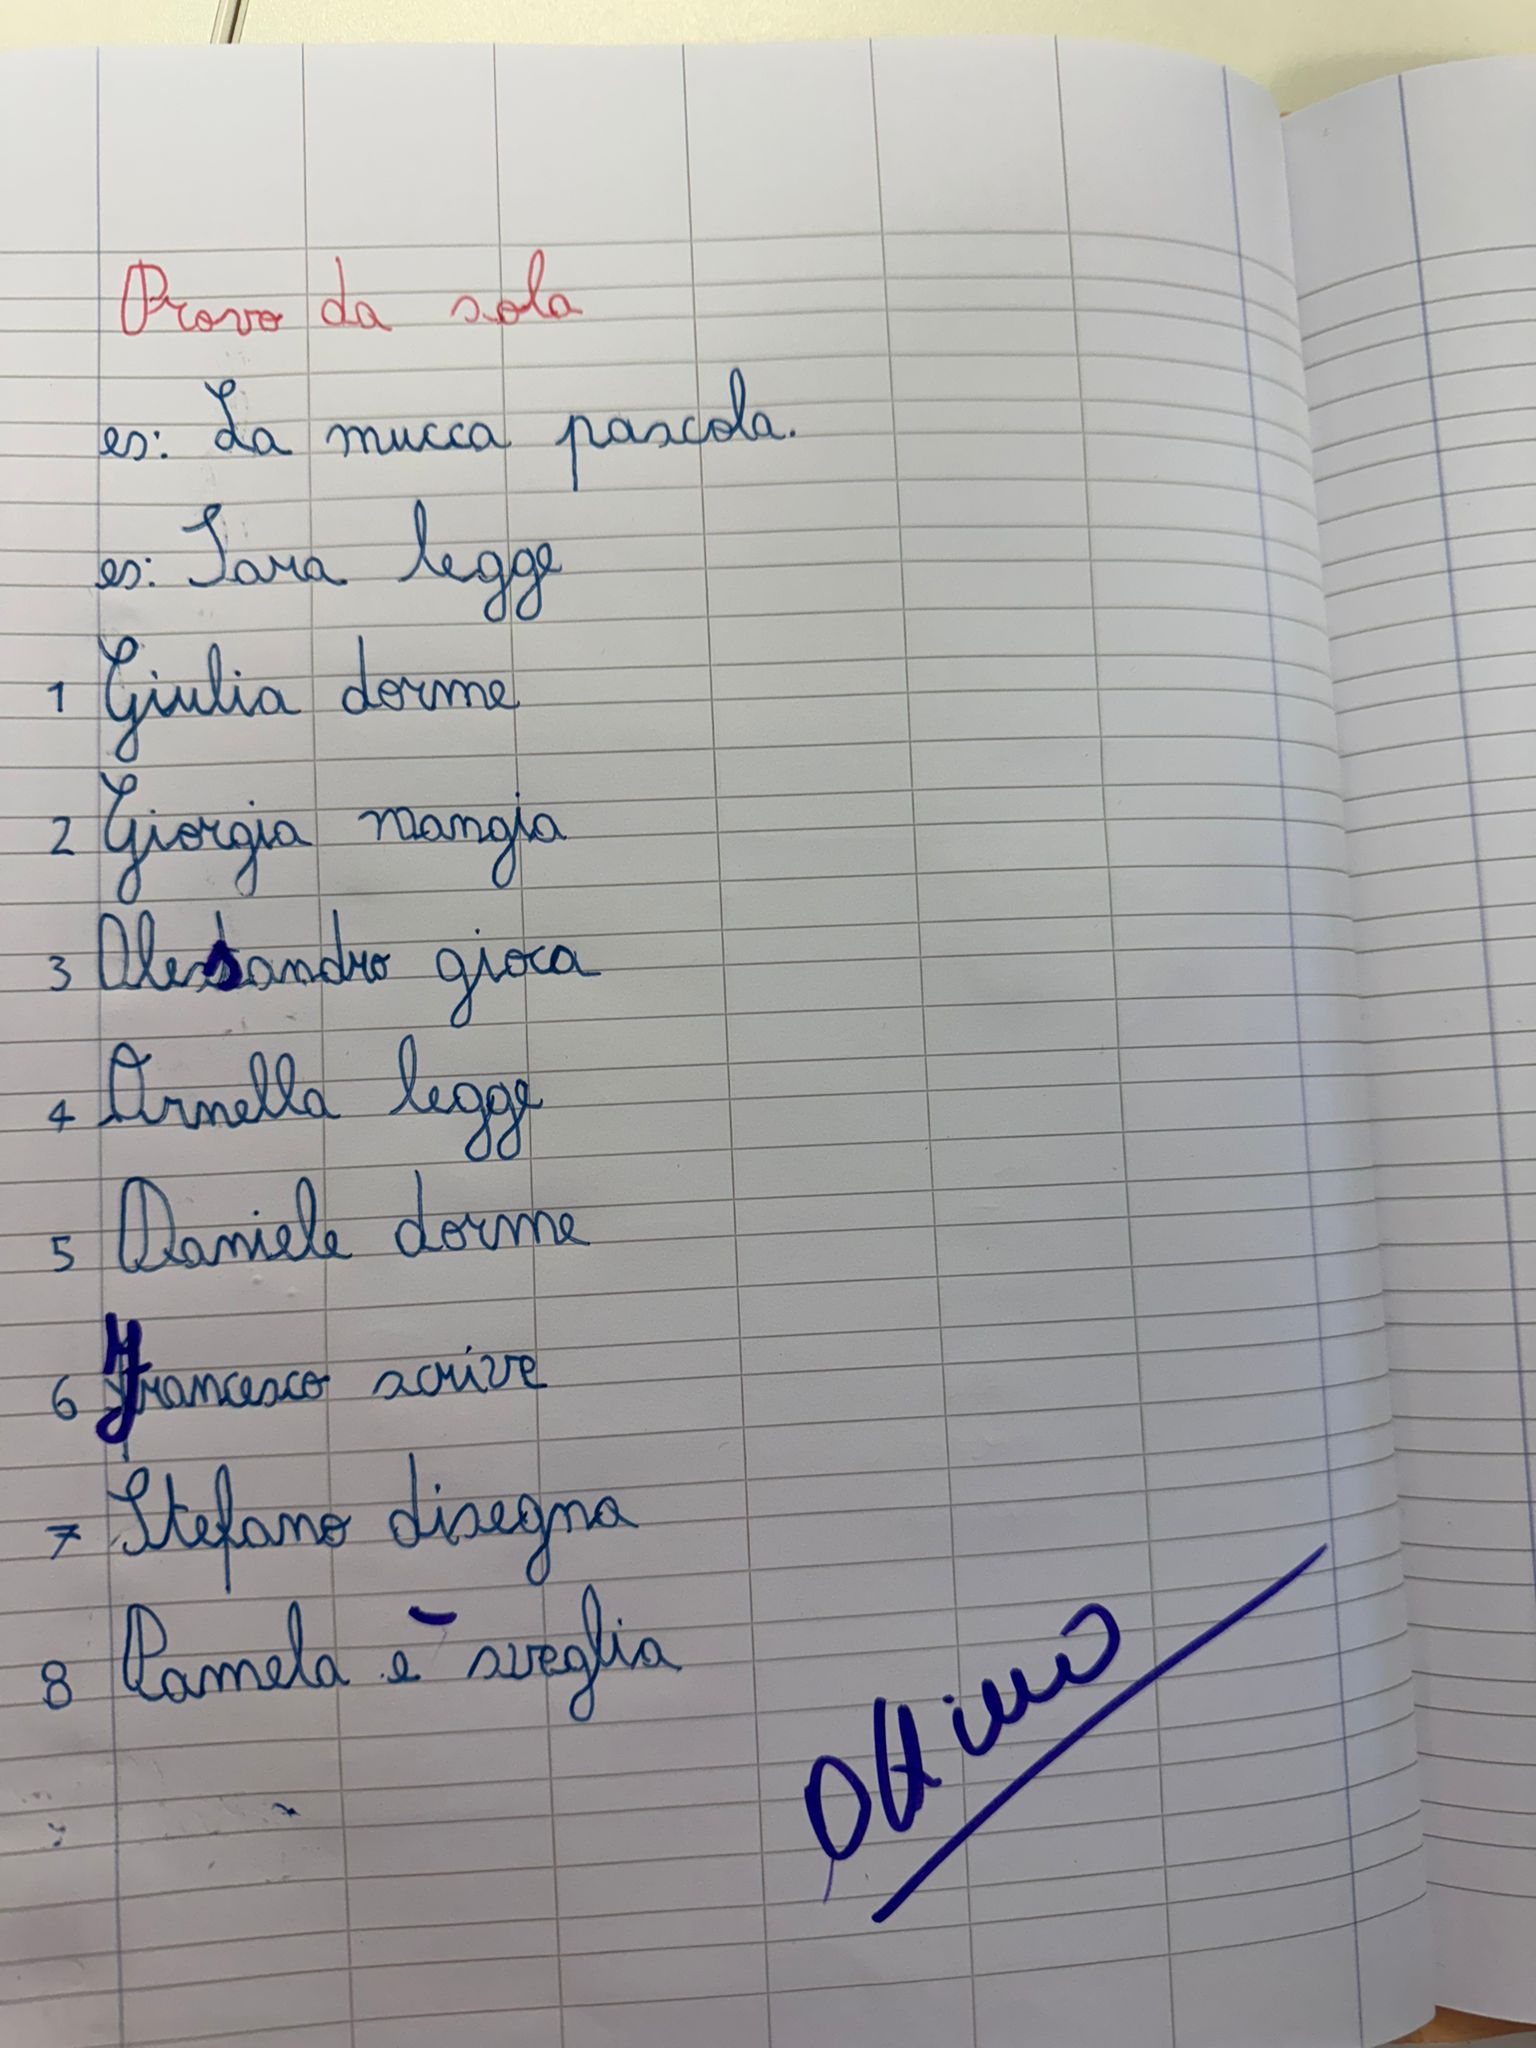 Provo da sola
es: La mucca pascola.
es: Sara legge
1 Giulia dorme
2 Giorgia mangia
3 Alessandro gioca
4 Ornella legge
5 Daniele dorme
6 Francesco scrive
7 Stefano disegna
8 Pamela è sveglia
Ottimo